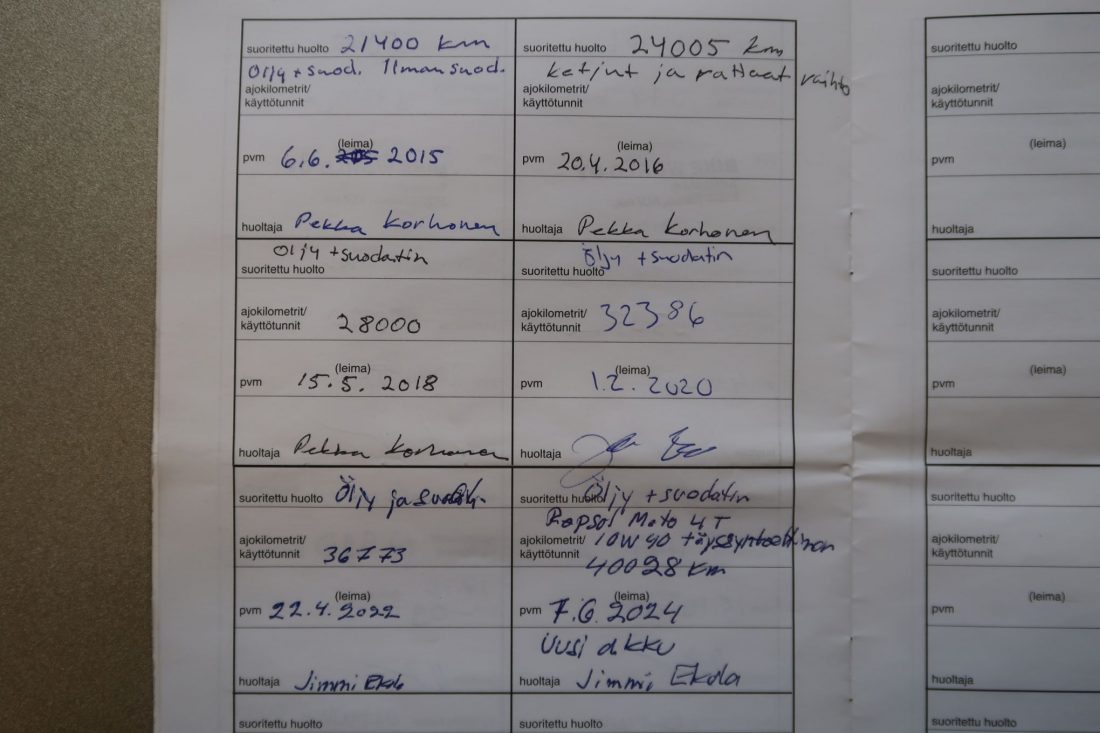 suoritettu huolto 21400 km
Öljy + suod. Ilmansuod.
ajokilometrit/
käyttötunnit
(leima)
pvm 6.6. 2015
huoltaja Pekka Korhonen
suoritettu huolto 24005 km
ketjut ja rattaat vaihto
ajokilometrit/
käyttötunnit
(leima)
pvm 20.4.2016
huoltaja Pekka Korhonen
Öljy + suodatin
suoritettu huolto
ajokilometrit/
käyttötunnit 28000
(leima)
pvm 15.5. 2018
huoltaja Pekka Korhonen
Öljy + suodatin
suoritettu huolto
ajokilometrit/
käyttötunnit 32386
(leima)
pvm 1.2.2020
huoltaja
suoritettu huolto Öljy ja
ajokilometrit/
käyttötunnit 36773
(leima)
pvm 22.4.2022
huoltaja Jimmi Ekola
suoritettu huolto Öljy + suodatin
Repsol Moto 4T
ajokilometrit/ 10W40 täyssynteettinen
käyttötunnit 40028 km
(leima)
pvm 7.6.2024
Uusi akku
huoltaja Jimmi Ekola
suoritettu huolto
suoritettu huolto
suoritettu huolto
ajokilometrit/
käyttötunnit
(leima)
pvm
huoltaja
suoritettu huolto
ajokilometrit/
käyttötunnit
(leima)
pvm
huoltaja
suoritettu huolto
ajokilometrit/
käyttötunnit
(leima)
pvm
huoltaja
suoritettu huolto